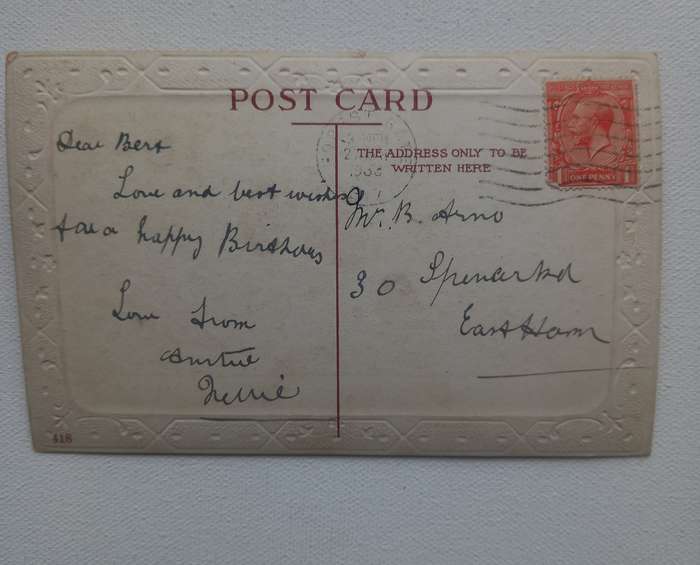 POST CARD
THE ADDRESS ONLY TO BE
WRITTEN HERE
Dear Bert
Love and best wishes
for a happy Birthday
Love from
Auntie
Nellie
Mr. B. Arno
30 Spencer Rd
East Ham
ONE PENNY
418